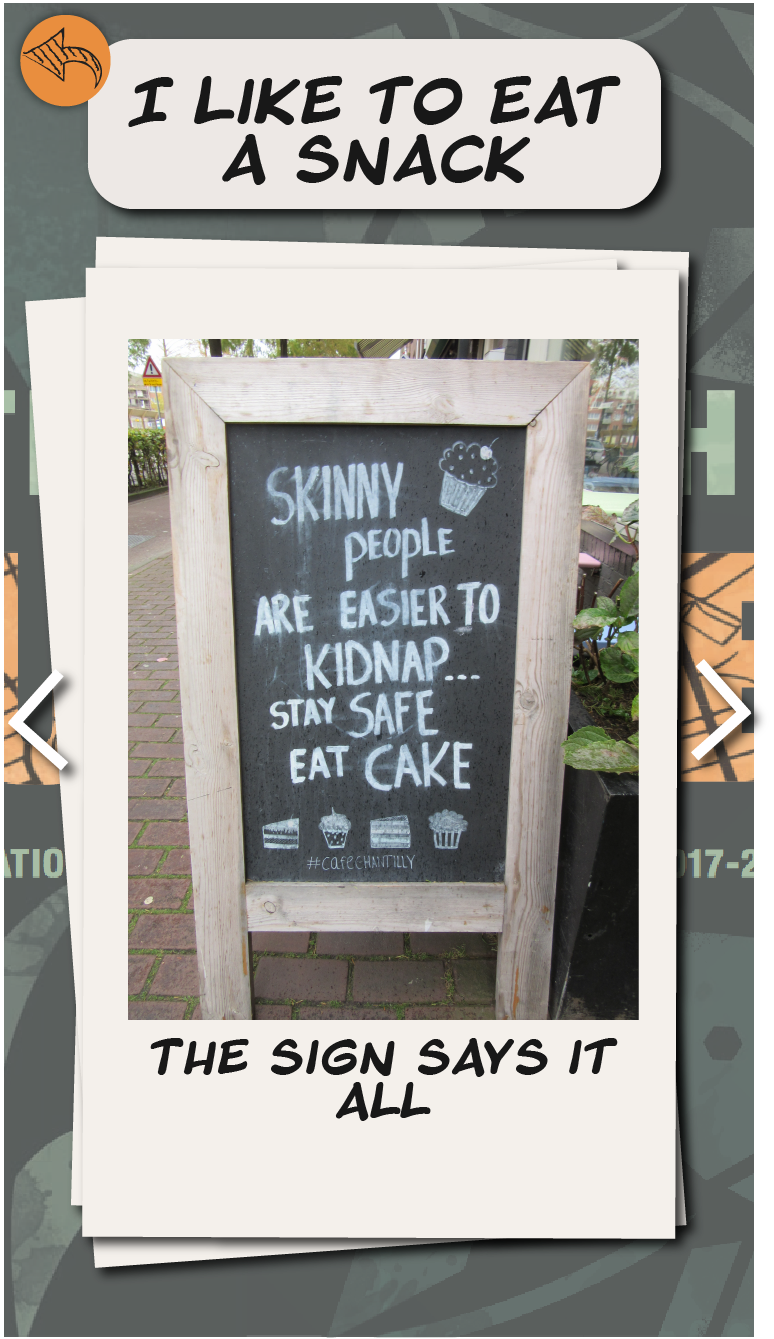 I LIKE TO EAT
A SNACK
SKINNY
PEOPLE
ARE EASIER TO
KIDNAP...
STAY SAFE
EAT CAKE
#cafeCHANTILLY
THE SIGN SAYS IT
ALL
ATIO
017-2